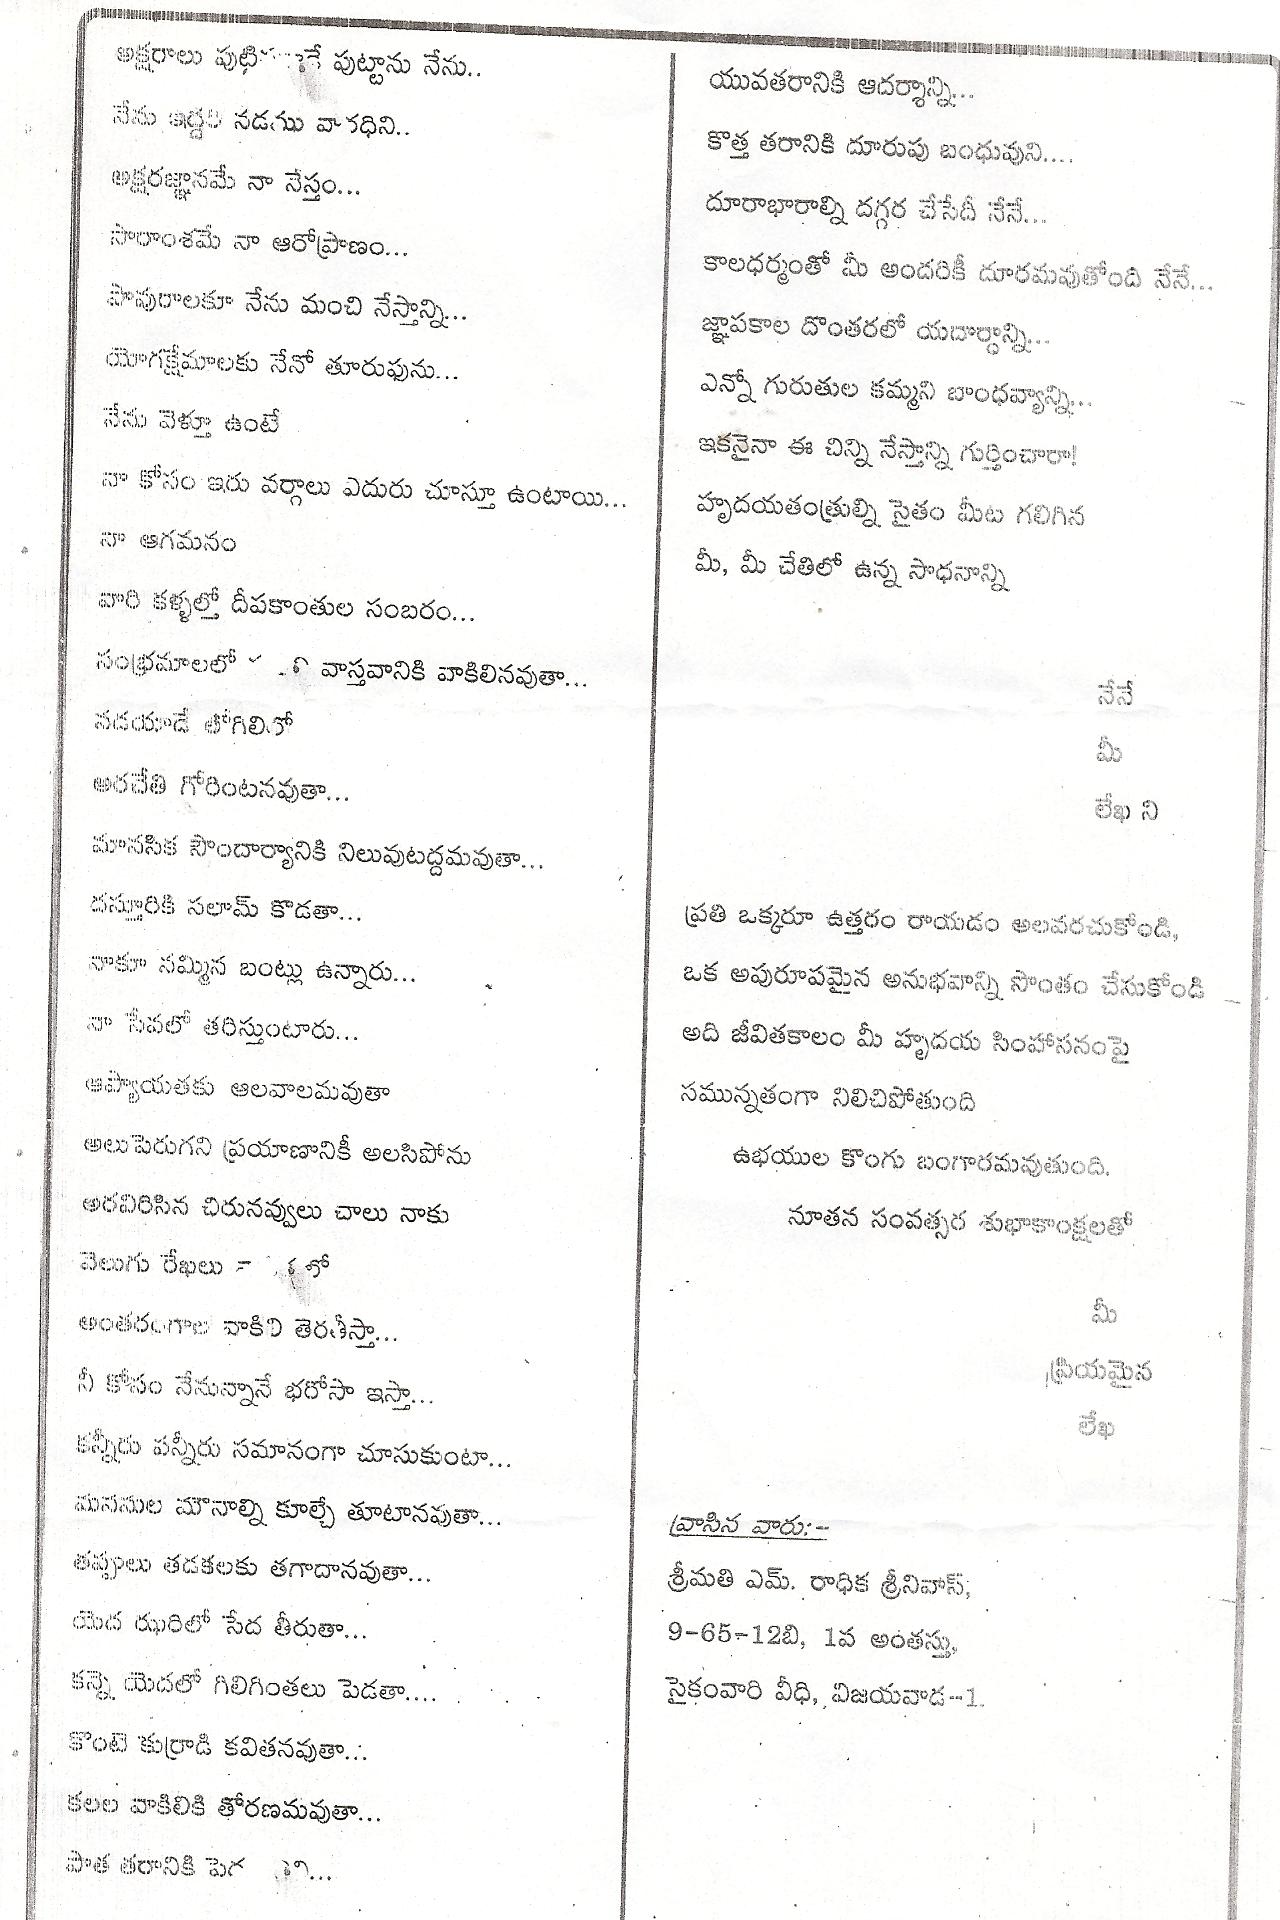 అక్షరాలు పుట్టాను నేను..
నేను ఇద్దరి నడుమ వారధిని..
అక్షరజ్ఞానమే నా నేస్తం...
సారాంశమే నా ఆరోప్రాణం...
పావురాలకూ నేను మంచి నేస్తాన్ని...
యోగక్షేమాలకు నేనో తూరుఫును...
నేను వెళ్తూ ఉంటే
నా కోసం ఇరు వర్గాలు ఎదురు చూస్తూ ఉంటాయి...
నా ఆగమనం
వారి కళ్ళల్తో దీపకాంతుల సంబరం...
సంభ్రమాలలో వాస్తవానికి వాకిలినవుతా...
నడయాడే లోగిలిలో
అరచేతి గోరింటనవుతా...
మానసిక సౌందార్యానికి నిలువుటద్దమవుతా...
దస్తూరికి సలామ్ కొడతా...
నాకూ నమ్మిన బంట్లు ఉన్నారు...
నా సేవలో తరిస్తుంటారు...
ఆప్యాయతకు ఆలవాలమవుతా
అలుపెరుగని ప్రయాణానికీ అలసిపోను
అరవిరిసిన చిరునవ్వులు చాలు నాకు
వెలుగు రేఖలు
అంతరంగాల వాకిలి తెరతీస్తా...
నీ కోసం నేనున్నానే భరోసా ఇస్తా...
కన్నీరు పన్నీరు సమానంగా చూసుకుంటా...
మనసుల మౌనాల్ని కూల్చే తూటానవుతా...
తప్పులు తడకలకు తగాదానవుతా...
యెద ఝరిలో సేద తీరుతా...
కన్నె యెదలో గిలిగింతలు పెడతా....
కొంటె కుర్రాడి కవితనవుతా...
కలల వాకిలికి తోరణమవుతా...
పాత తరానికి
యువతరానికి ఆదర్శాన్ని...
కొత్త తరానికి దూరుపు బంధువుని....
దూరాభారాల్ని దగ్గర చేసేదీ నేనే...
కాలధర్మంతో మీ అందరికీ దూరమవుతోంది నేనే...
జ్ఞాపకాల దొంతరలో యదార్ధాన్ని...
ఎన్నో గురుతుల కమ్మని బాంధవ్యాన్ని...
ఇకనైనా ఈ చిన్ని నేస్తాన్ని గుర్తించారా!
హృదయతంత్రుల్ని సైతం మీట గలిగిన
మీ, మీ చేతిలో ఉన్న సాధనాన్ని
నేనే
మీ
లేఖ ని
ప్రతి ఒక్కరూ ఉత్తరం రాయడం అలవరచుకోండి,
ఒక అపురూపమైన అనుభవాన్ని సొంతం చేసుకోండి
అది జీవితకాలం మీ హృదయ సింహాసనంపై
సమున్నతంగా నిలిచిపోతుంది
ఉభయుల కొంగు బంగారమవుతుంది.
నూతన సంవత్సర శుభాకాంక్షలతో
మీ
ప్రియమైన
లేఖ
వ్రాసిన వారు:-
శ్రీమతి ఎమ్. రాధిక శ్రీనివాస్,
9-65-12బి, 1వ అంతస్తు,
సైకంవారి వీధి, విజయవాడ-1.